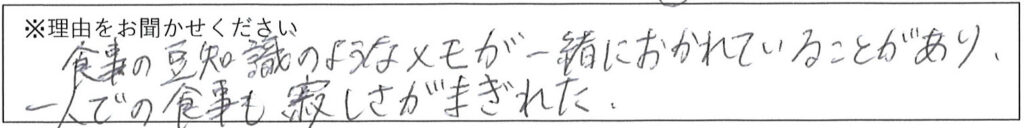 ※理由をお聞かせください
食事の豆知識のようなメモが一緒におかれていることがあり、
一人での食事も寂しさがまぎれた.